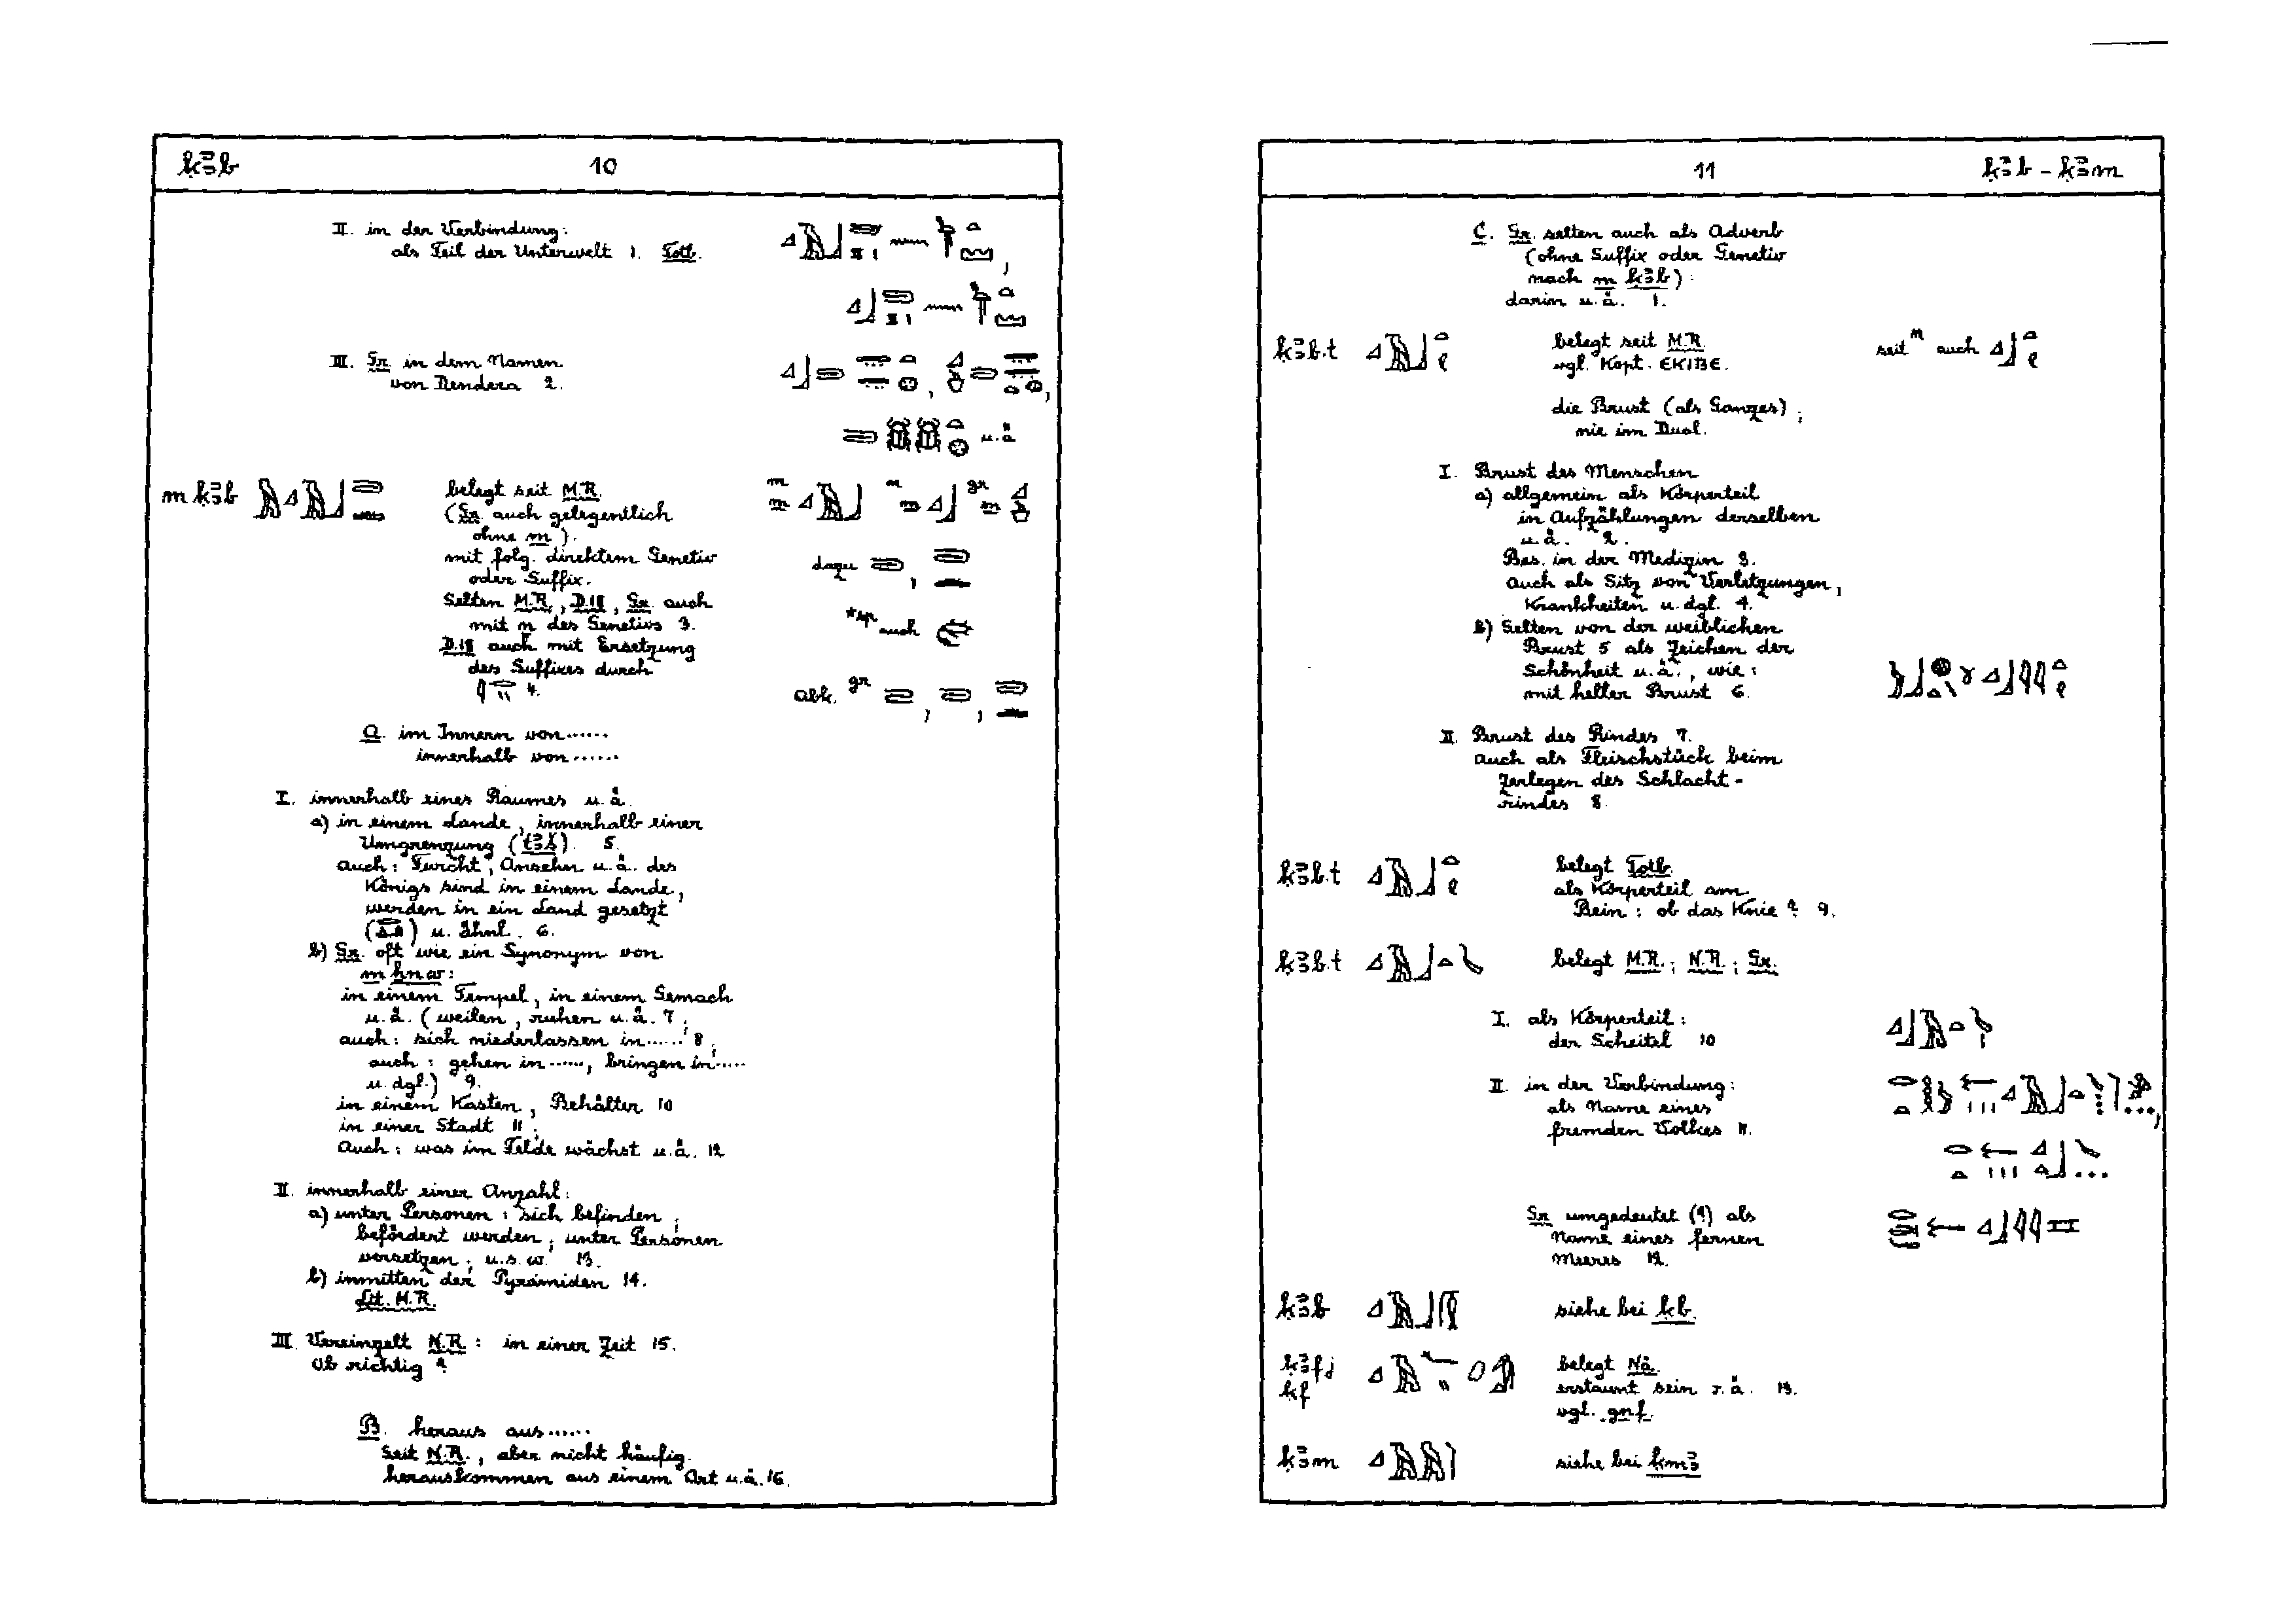 ḳꜣb 10
II. in der Verbindung:
als Teil der Unterwelt 1. Totb.
III. Gr. in dem Namen
von Dendera 2.
u. ä.
m ḳꜣb belegt seit M.R.
(Gr. auch gelegentlich
ohne m).
mit folg. direktem Genetiv
oder Suffix.
Selten M.R., D.18, Gr. auch
mit n des Genetivs 3.
D.18 auch mit Ersetzung
des Suffixes durch
4.
dazu
auch
abk. gr
A. im Innern von ......
innerhalb von ......
I. innerhalb eines Raumes u. ä.
a) in einem Lande, innerhalb einer
Umgrenzung (tꜣš). 5.
auch: Furcht, Ansehn u. ä. des
Königs sind in einem Lande,
werden in ein Land gesetzt
u. ähnl. 6.
b) Gr. oft wie ein Synonym von
m ẖnw:
in einem Tempel, in einem Gemach
u. ä. (weilen, ruhen u. ä. 7;
auch: sich niederlassen in ...... 8;
auch: gehen in ......, bringen in .....
u. dgl.) 9.
in einem Kasten, Behälter 10
in einer Stadt 11;
Auch: was im Felde wächst u. ä. 12
II. innerhalb einer Anzahl:
a) unter Personen: sich befinden;
befördert werden; unter Personen
versetzen; u.s.w. 13.
b) inmitten der Pyramiden 14.
Lit. M.R.
III. Vereinzelt N.R.: in einer Zeit 15.
Ob richtig?
B. heraus aus ......
Seit N.R., aber nicht häufig.
herauskommen aus einem Ort u. ä. 16.
11 ḳꜣb - ḳꜣm
C. Gr. selten auch als Adverb
(ohne Suffix oder Genetiv
nach m ḳꜣb):
darin u. ä. 1.
ḳꜣb.t belegt seit M.R. seit n auch
vgl. Kopt. ⲉⲕⲓⲃⲉ.
die Brust (als Ganzes);
nie im Dual.
I. Brust des Menschen
a) allgemein als Körperteil
in Aufzählungen derselben
u. ä. 2.
Bes. in der Medizin 3.
auch als Sitz von Verletzungen,
Krankheiten u. dgl. 4.
b) Selten von der weiblichen
Brust 5 als Zeichen der
Schönheit u. ä., wie:
mit heller Brust 6.
II. Brust des Rindes 7.
auch als Fleischstück beim
Zerlegen des Schlacht-
rindes 8.
ḳꜣb.t belegt Totb.
als Körperteil am
Bein: ob das Knie? 9.
ḳꜣb.t belegt M.R.; N.R.; Gr.
I. als Körperteil:
der Scheitel 10
II. in der Verbindung:
als Name eines
fremden Volkes 11.
Gr. umgedeutet (?) als
Name eines fernen
Meeres 12.
ḳꜣb siehe bei ḳb.
ḳꜣfj belegt Nä.
ḳf erstaunt sein o. ä. 13.
vgl. gnf.
ḳꜣm siehe bei ḳmꜣ